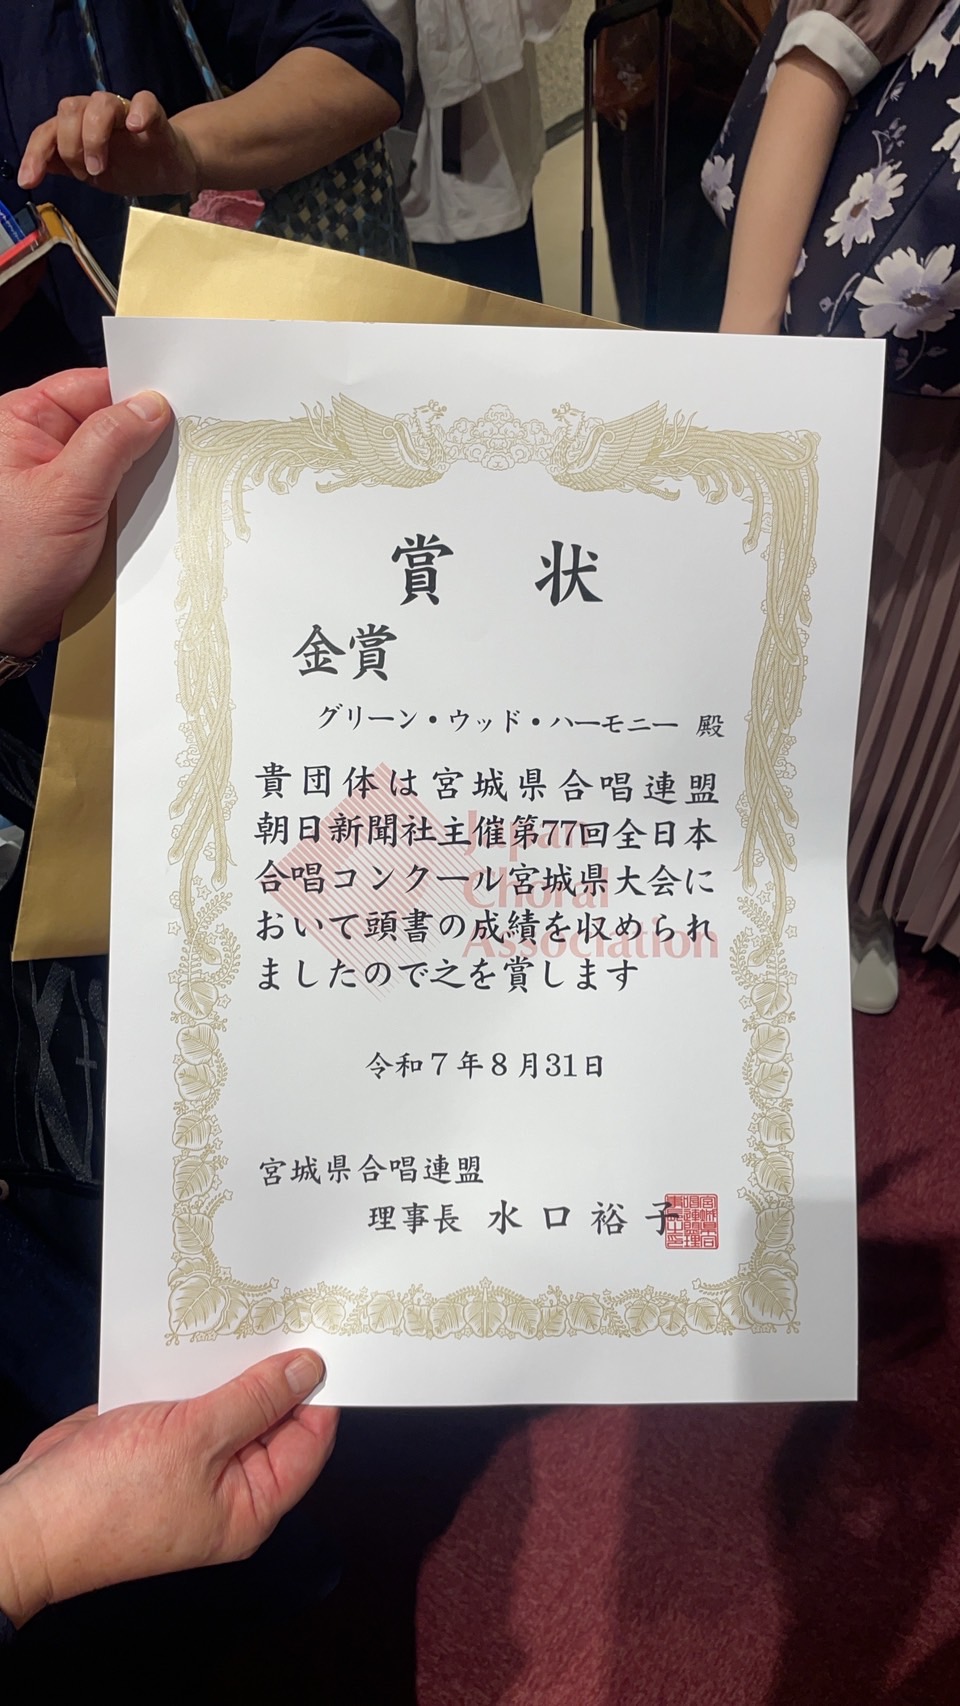 賞状
金賞
グリーン・ウッド・ハーモニー 殿
貴団体は宮城県合唱連盟
朝日新聞社主催第77回全日本
合唱コンクール宮城県大会に
おいて頭書の成績を収められ
ましたので之を賞します
Japan
Choral
Association
令和7年8月31日
宮城県合唱連盟
理事長 水口裕子